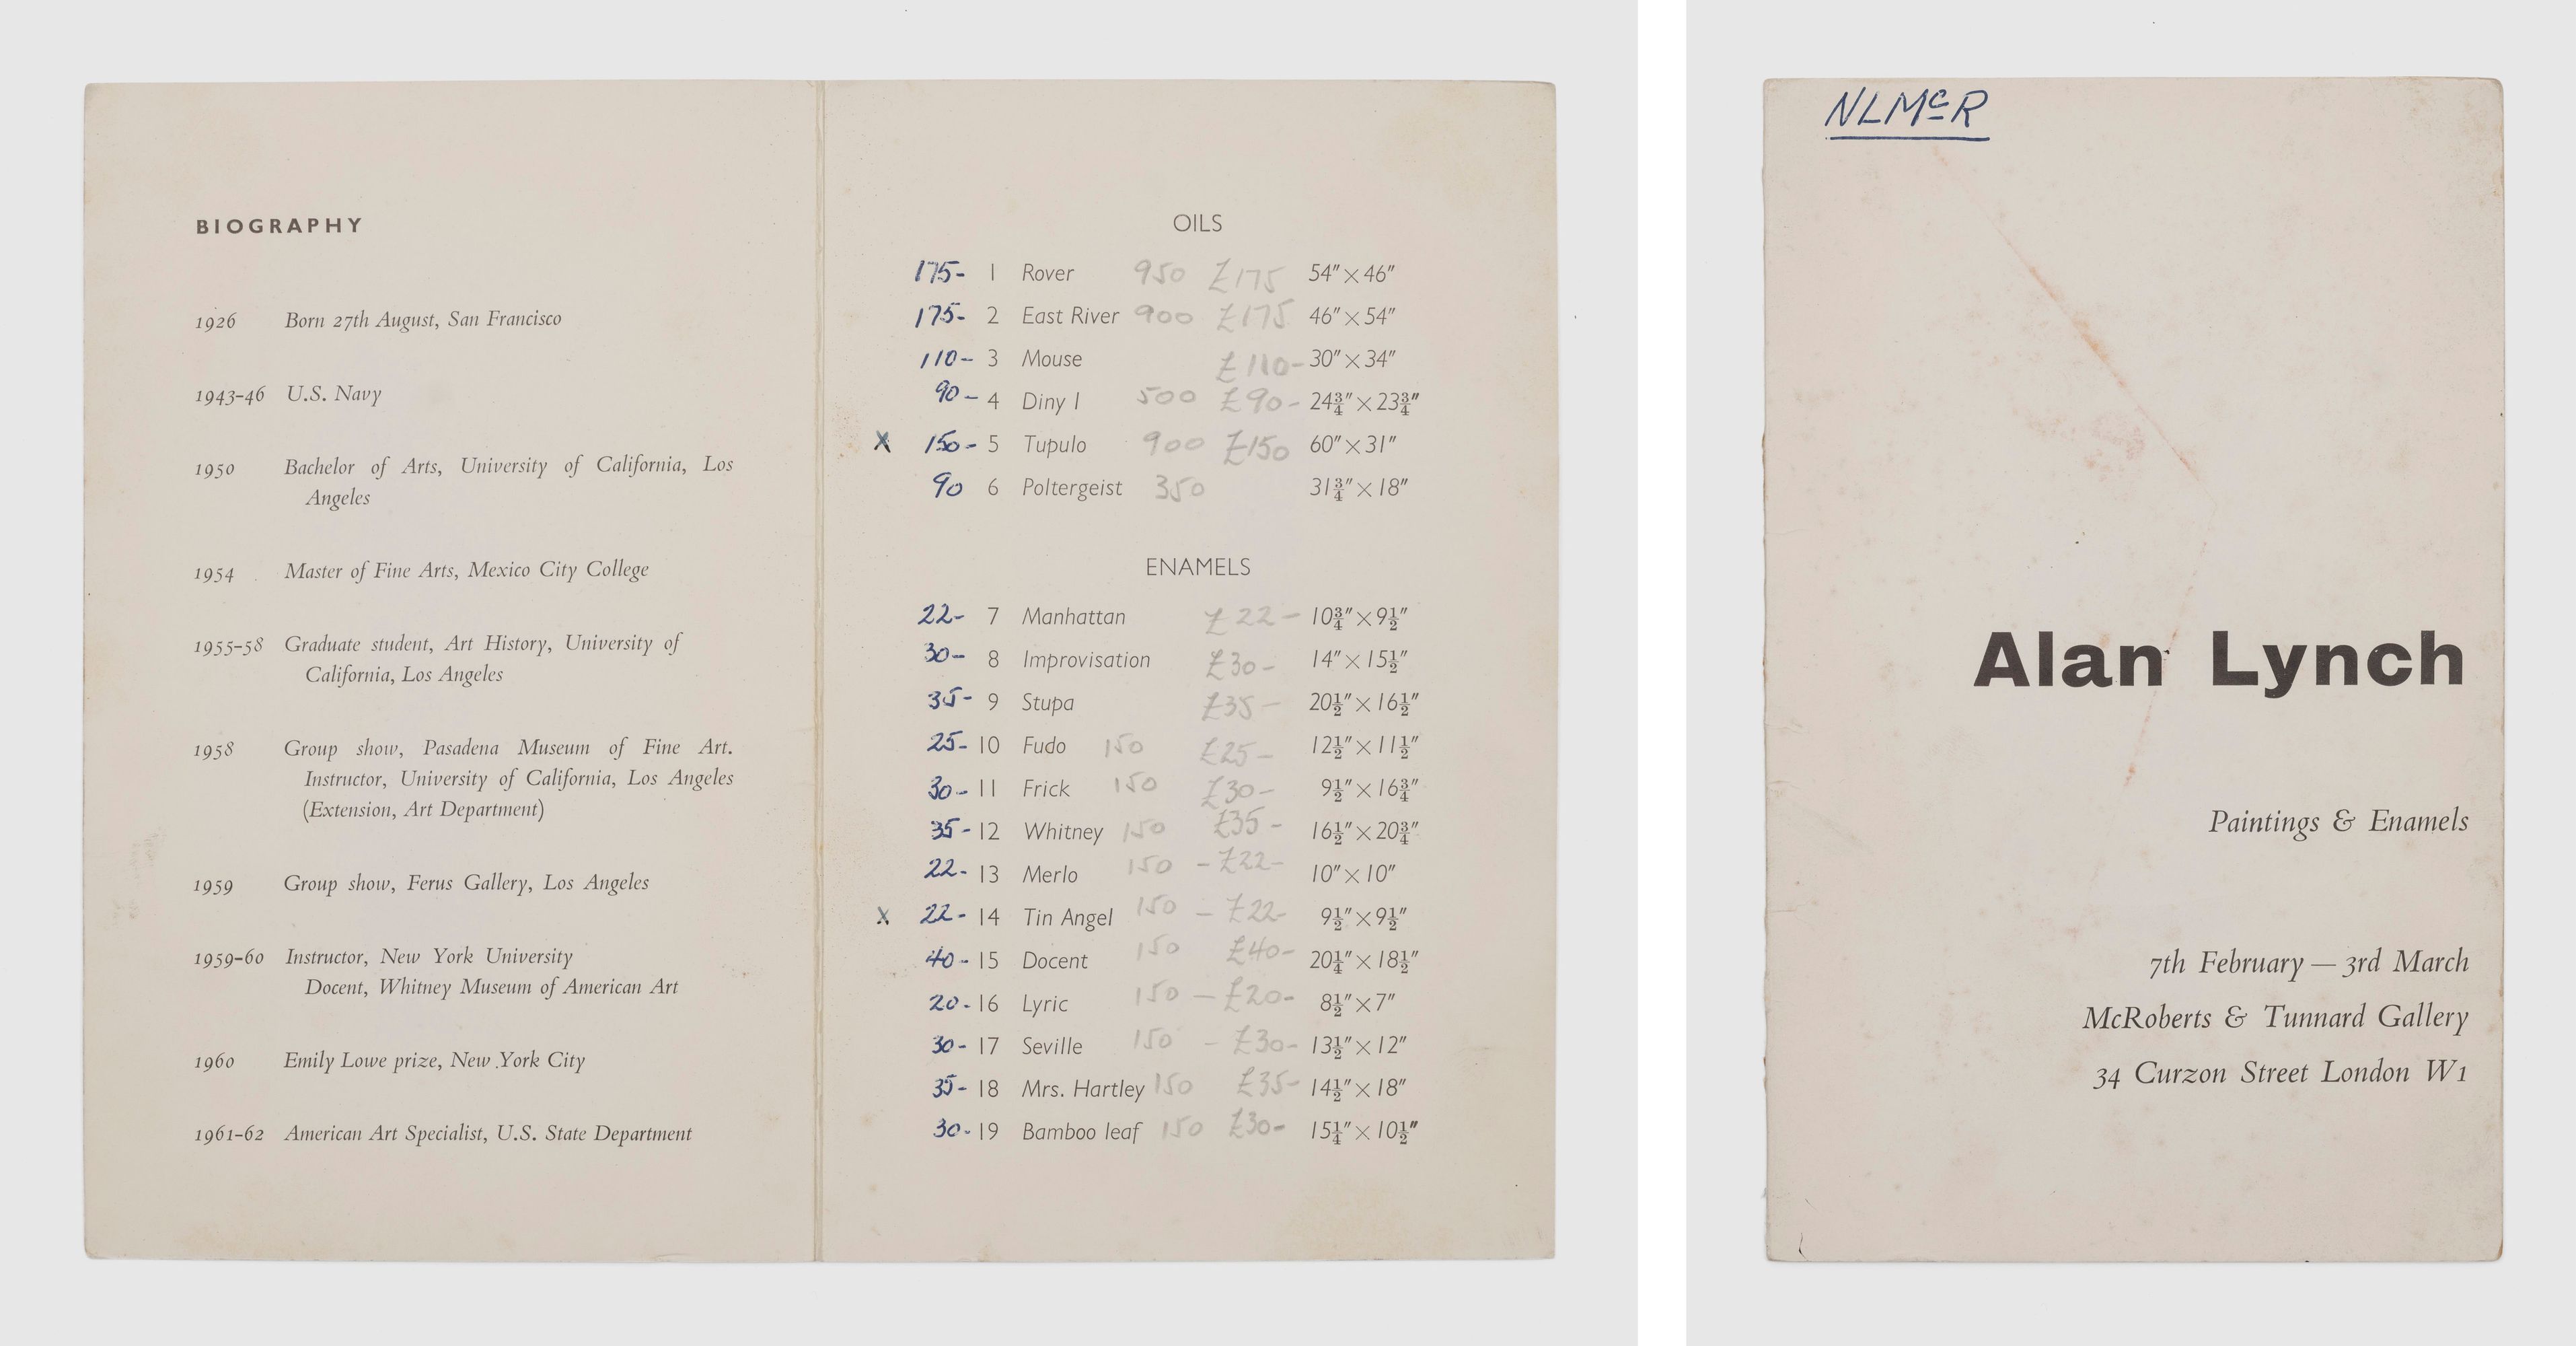 BIOGRAPHY
1926 Born 27th August, San Francisco
1943-46 U.S. Navy
1950 Bachelor of Arts, University of California, Los
Angeles
1954 Master of Fine Arts, Mexico City College
1955-58 Graduate student, Art History, University of
California, Los Angeles
1958 Group show, Pasadena Museum of Fine Art.
Instructor, University of California, Los Angeles
(Extension, Art Department)
1959 Group show, Ferus Gallery, Los Angeles
1959-60 Instructor, New York University
Docent, Whitney Museum of American Art
1960 Emily Lowe prize, New York City
1961-62 American Art Specialist, U.S. State Department
OILS
175- 1 Rover 950 £175 54″×46″
175- 2 East River 900 £175 46″×54″
110- 3 Mouse £110- 30″×34″
90- 4 Diny I 500 £90- 24¾″×23¾″
X 150- 5 Tupulo 900 £150 60″×31″
90 6 Poltergeist 350 31¾″×18″
ENAMELS
22- 7 Manhattan £22- 10¾″×9½″
30- 8 Improvisation £30- 14″×15½″
35- 9 Stupa £35- 20½″×16½″
25- 10 Fudo 150 £25- 12½″×11½″
30- 11 Frick 150 £30- 9½″×16¾″
35- 12 Whitney 150 £35- 16½″×20¾″
22- 13 Merlo 150 -£22- 10″×10″
X 22- 14 Tin Angel 150 -£22- 9½″×9½″
40- 15 Docent 150 £40- 20¼″×18½″
20- 16 Lyric 150 -£20- 8½″×7″
30- 17 Seville 150 -£30- 13½″×12″
35- 18 Mrs. Hartley 150 £35- 14½″×18″
30- 19 Bamboo leaf 150 £30- 15¼″×10½″
NLMcR
Alan Lynch
Paintings & Enamels
7th February — 3rd March
McRoberts & Tunnard Gallery
34 Curzon Street London W1